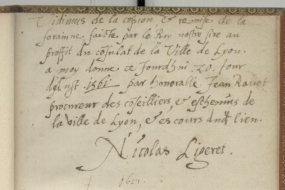 Vidimus de la cession et remise de la
foraine faicte par le Roy nostre sire au
proffit du cõsulat de la Ville de Lyon.
a moy donne ce Jourdhui
1561 par honorable Jean Ravot
procureur des cõseillers et eschevins de
la ville de Lyon, et es cours dud lieu.
Nicolas Ligeret.